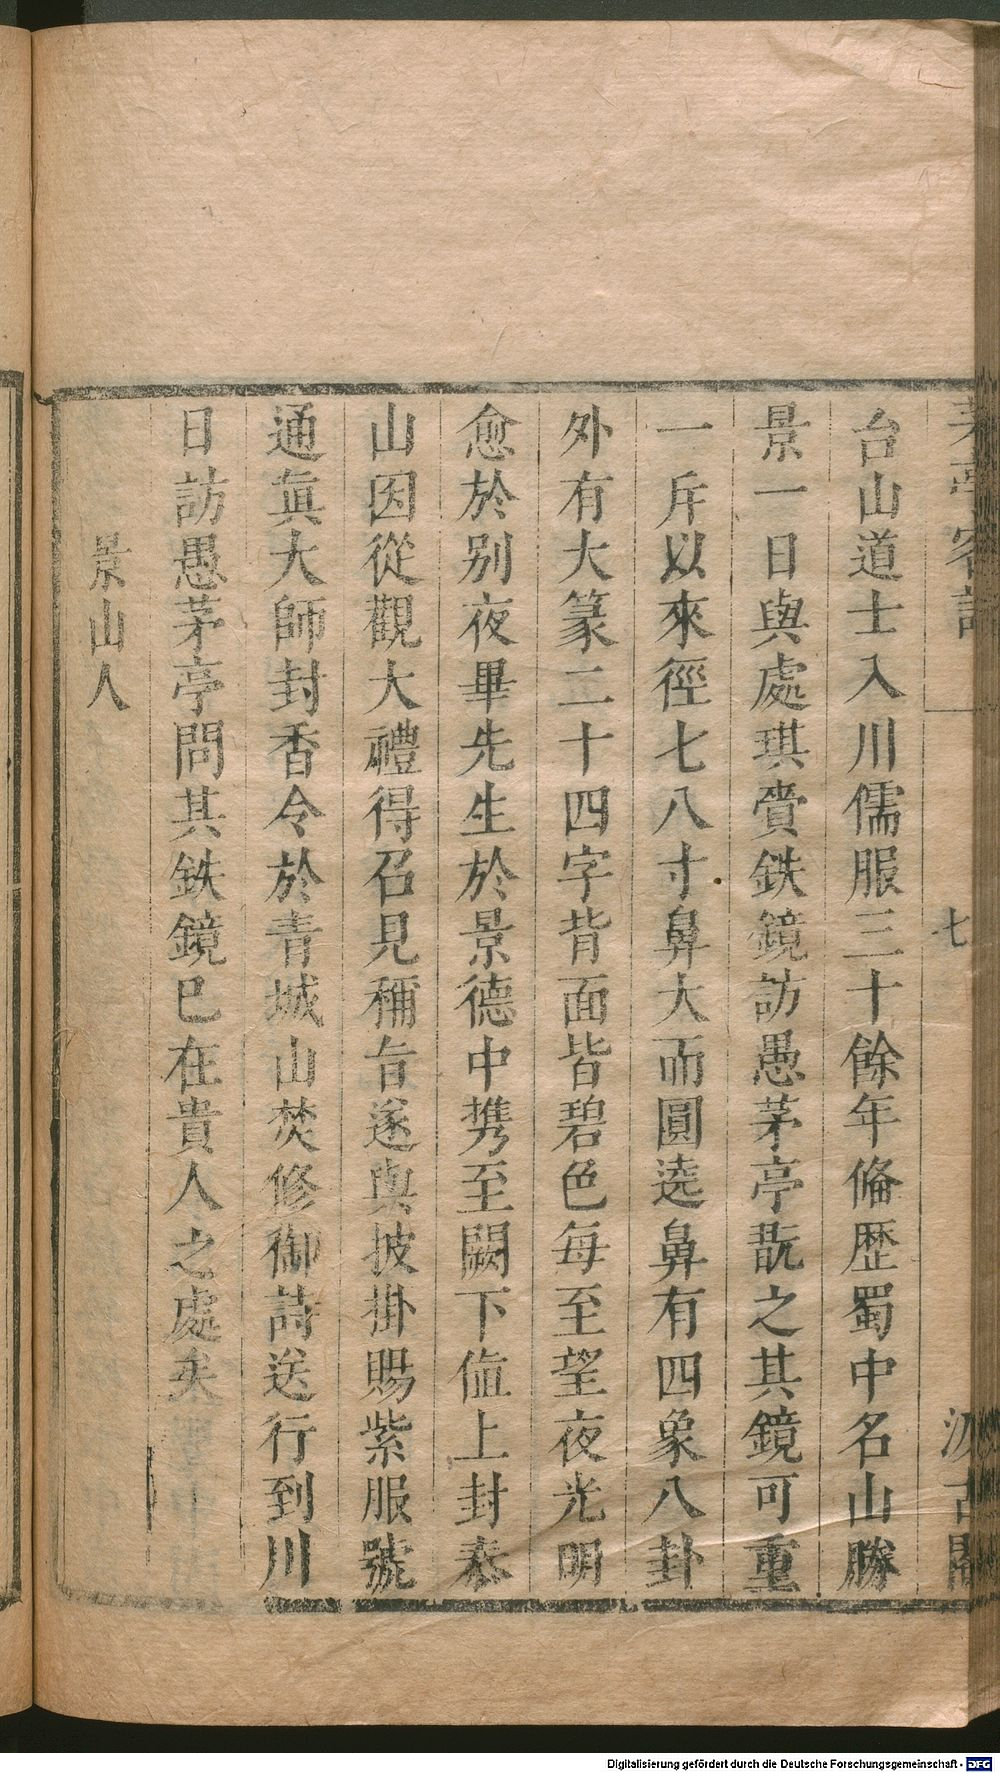 茅亭客話
七
汲古閣
台山道士入川儒服三十餘年俻歷蜀中名山勝
景一日與處琪賫鉄鏡訪愚茅亭翫之其鏡可重
一斥以來徑七八寸鼻大而圓遶鼻有四象八卦
外有大篆二十四字背面皆碧色每至望夜光明
愈於别夜畢先生於景德中携至闕下值上封泰
山因從觀大禮得召見稱旨遂與披掛賜紫服號
通眞大師封香令於青城山焚修御詩送行到川
日訪愚茅亭問其鉄鏡已在貴人之處矣
景山人
Digitalisierung gefördert durch die Deutsche Forschungsgemeinschaft - DFG